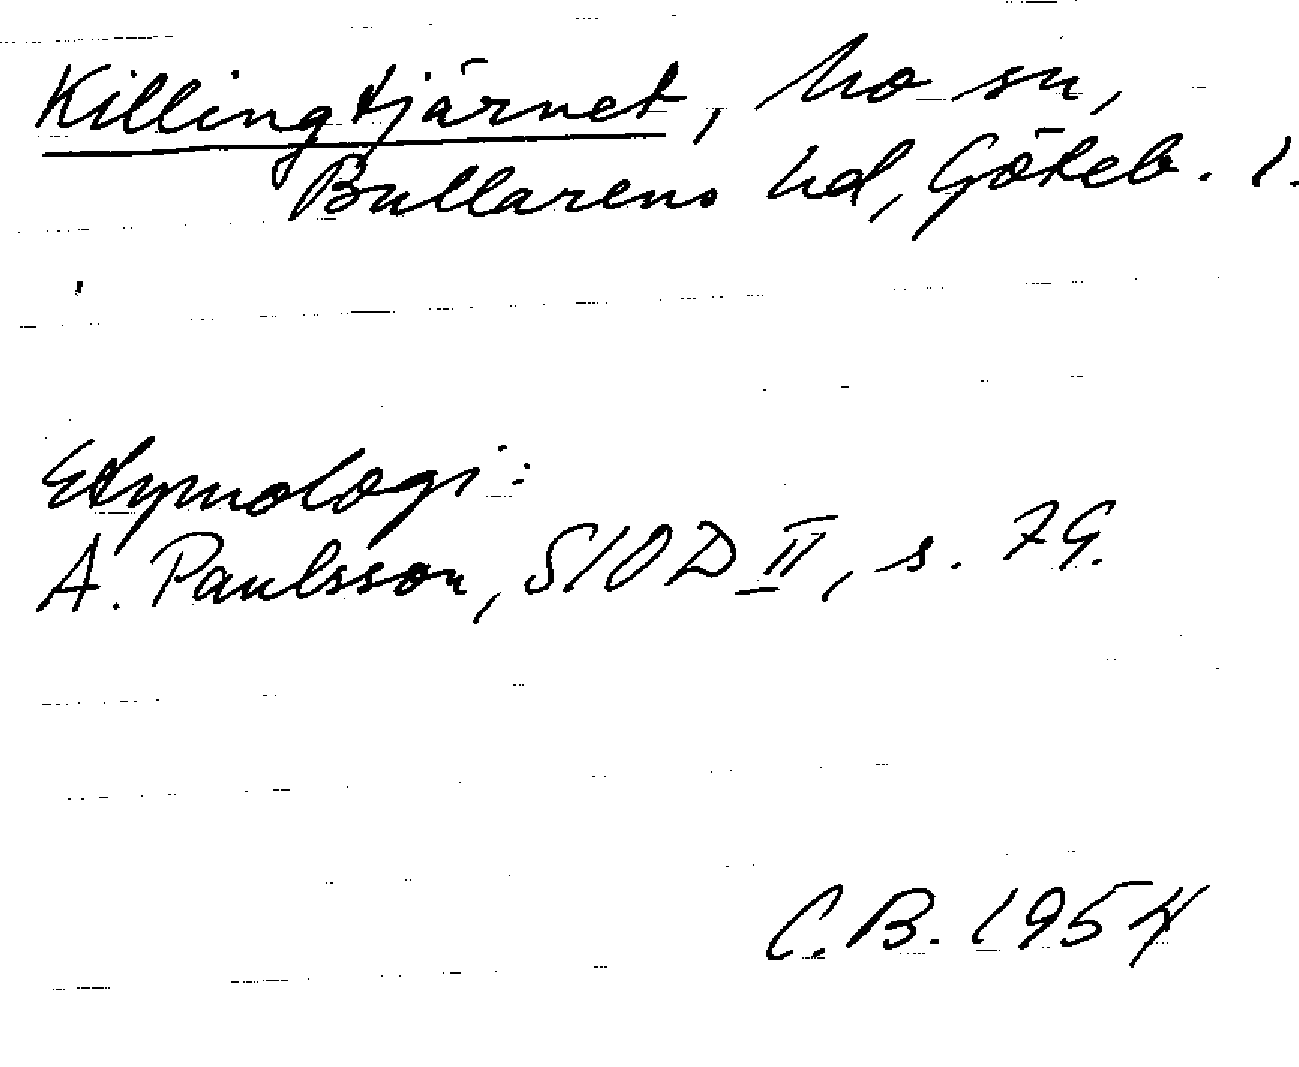 Killingtjärnet, Mo sn,
Bullarens hd, Göteb. l.
Etymologi:
A. Paulsson, SIOD II, s. 79.
C.B. 1954